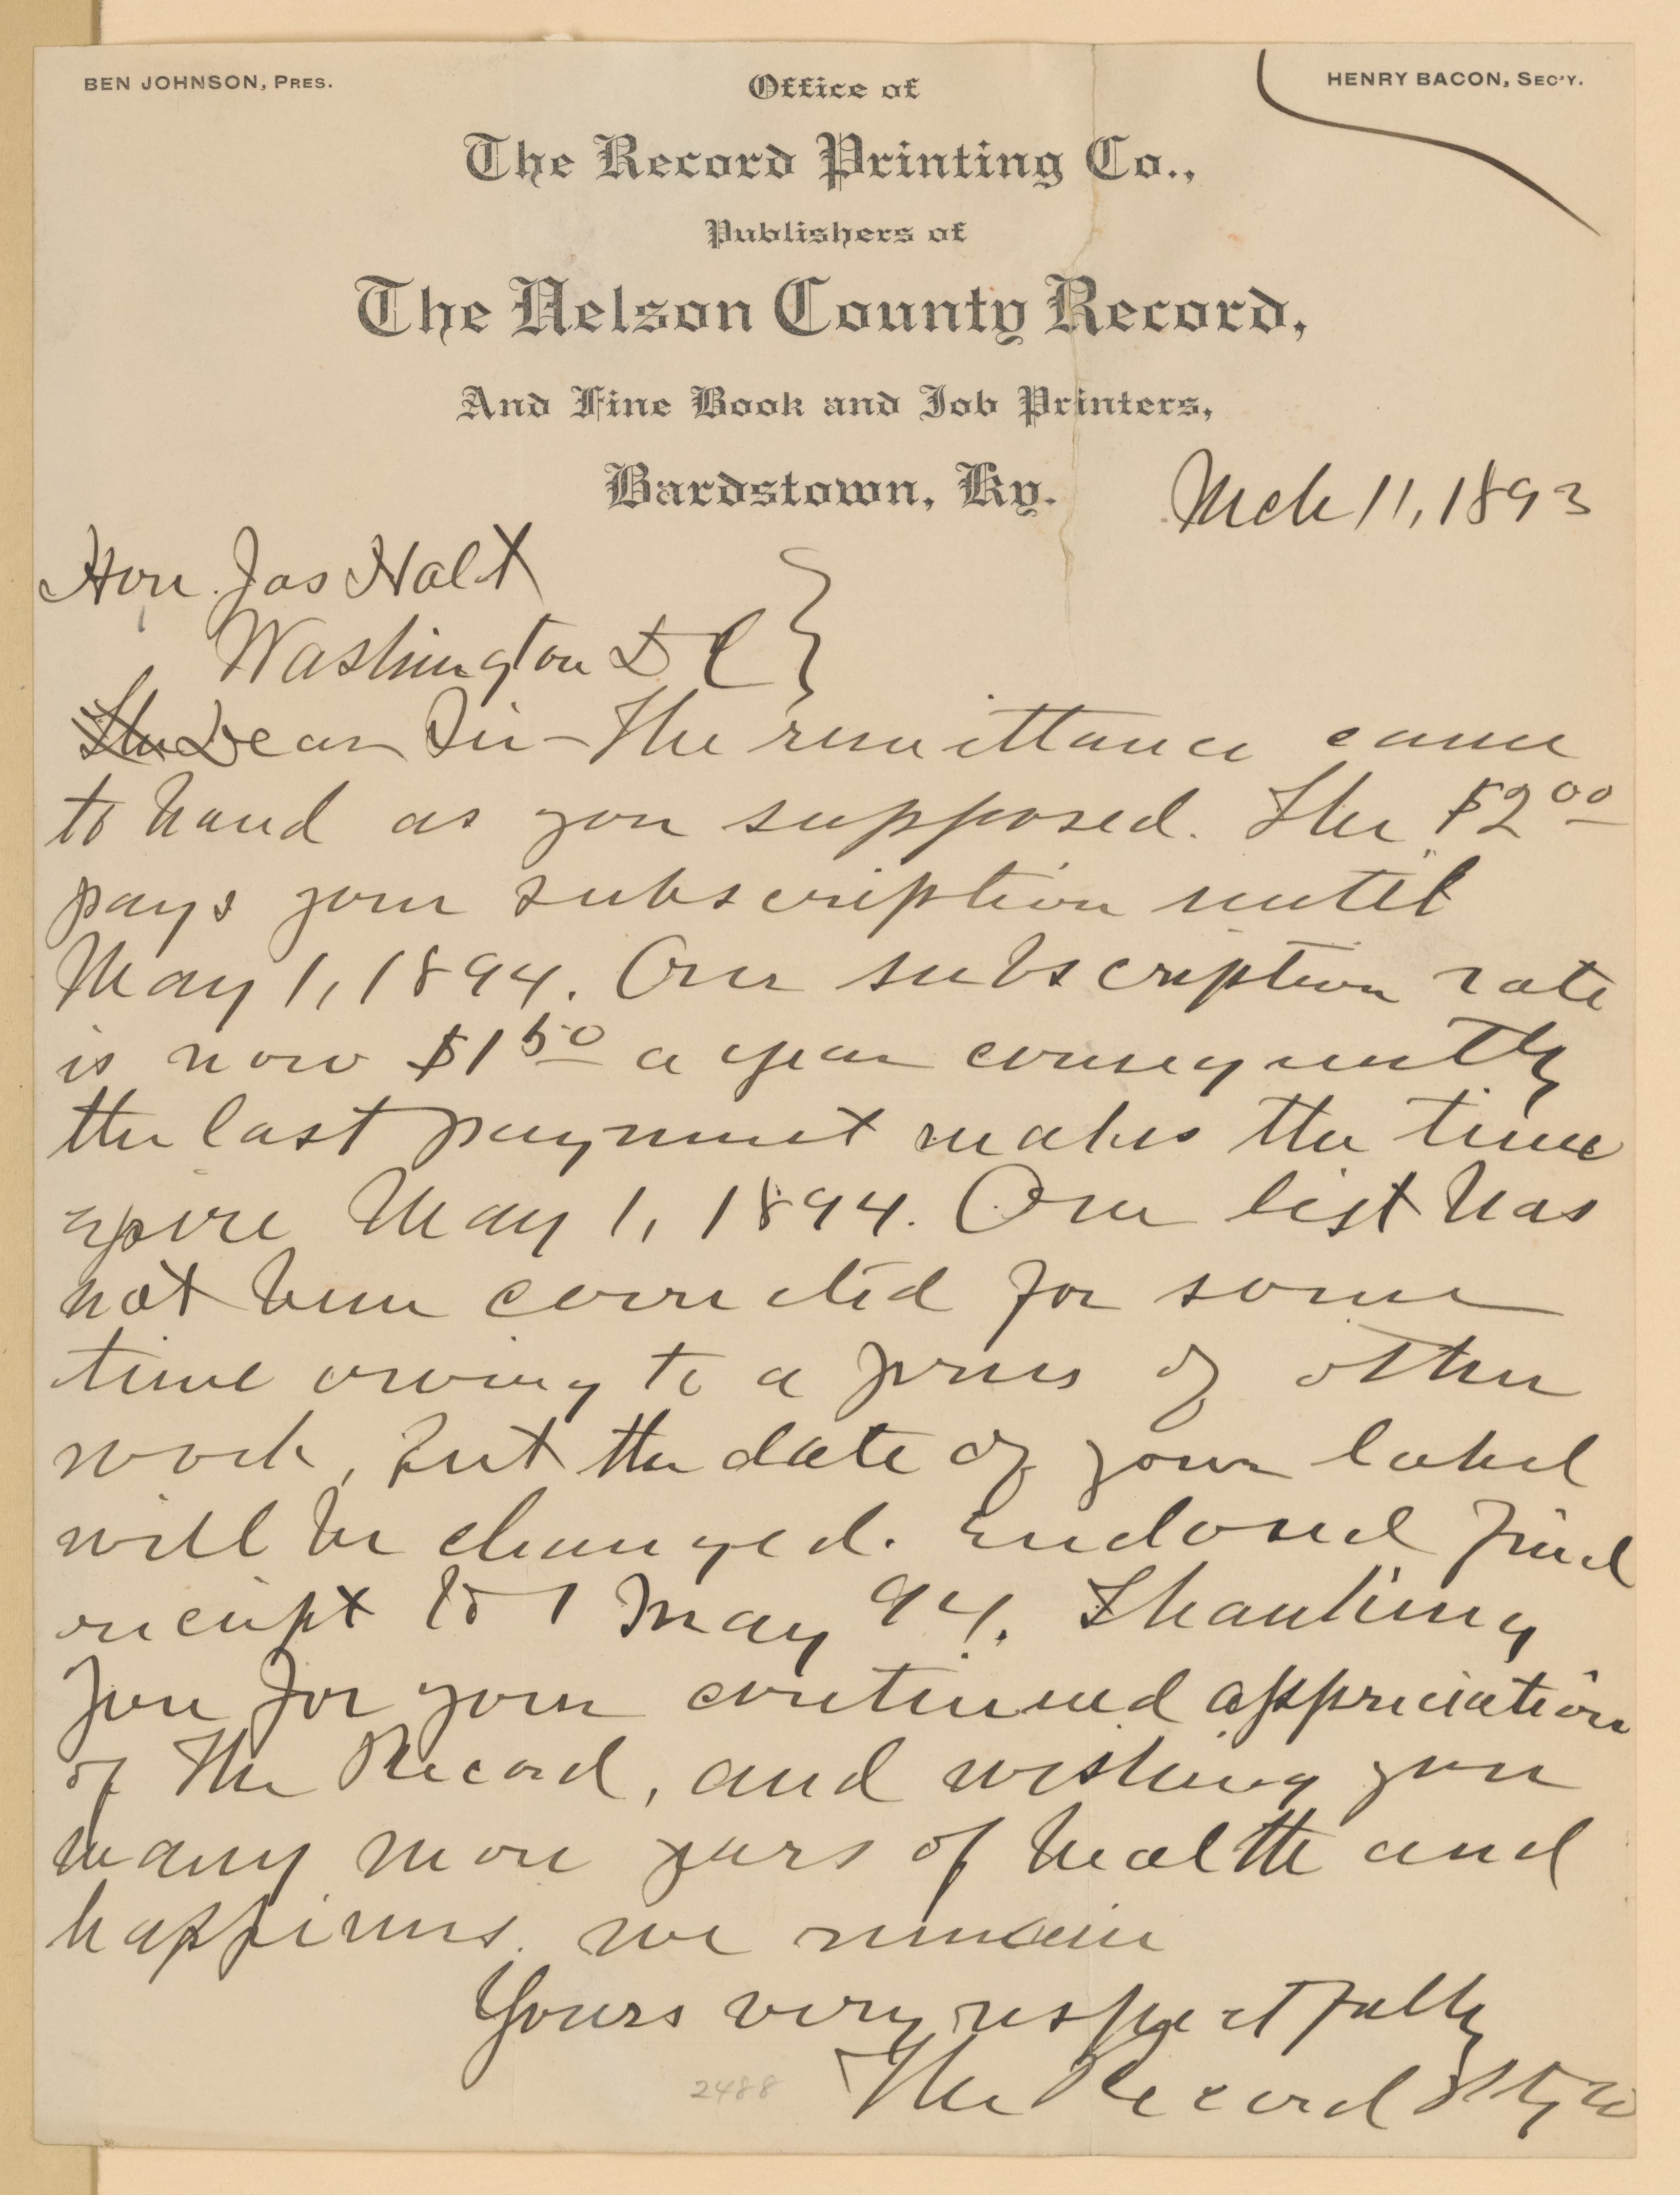 BEN JOHNSON, PRES.
Office of
HENRY BACON, SEC'Y.
The Record Printing Co.,
Publishers of
The Nelson County Record,
And Fine Book and Job Printers,
Bardstown, Ky.
Mch 11, 1893
Hon. Jas Holt
Washington D C
The Dear Sir - The remittance came
to hand as you supposed. The $2.00
pays your subscription until
May 1, 1894. Our subscription rate
is now $1.50 a year consequently
the last payment makes the time
expire May 1, 1894. Our list has
not been corrected for some
time owing to a press of other
work, but the date of your label
will be changed. Enclosed find
receipt to 1 May 94. Thanking
you for your continued appreciation
of The Record, and wishing you
many more years of health and
happiness. we remain
Yours very respectfully
The Record Ptg Co
2488